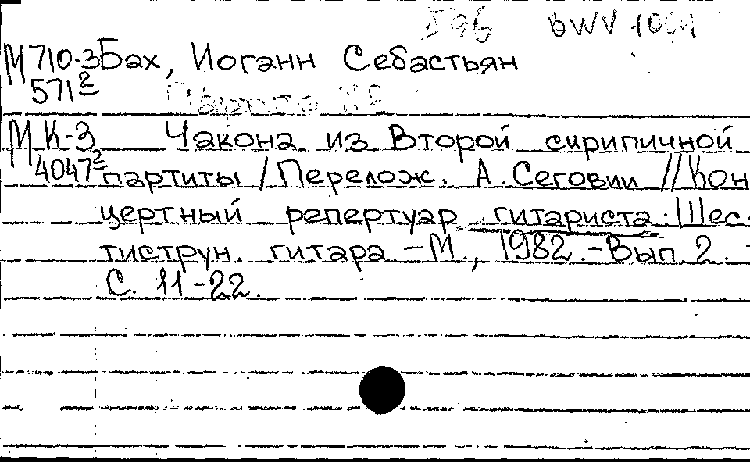 BWV 1004
М710-3 Бах, Иоганн Себастьян
571² Партита №2
М К-3 Чакона из Второй скрипичной
4047² партиты / Перелож. А. Сеговии // Кон
цертный репертуар гитариста. Шес
тиструн. гитара – М., 1982. – Вып. 2.
С. 11-22.